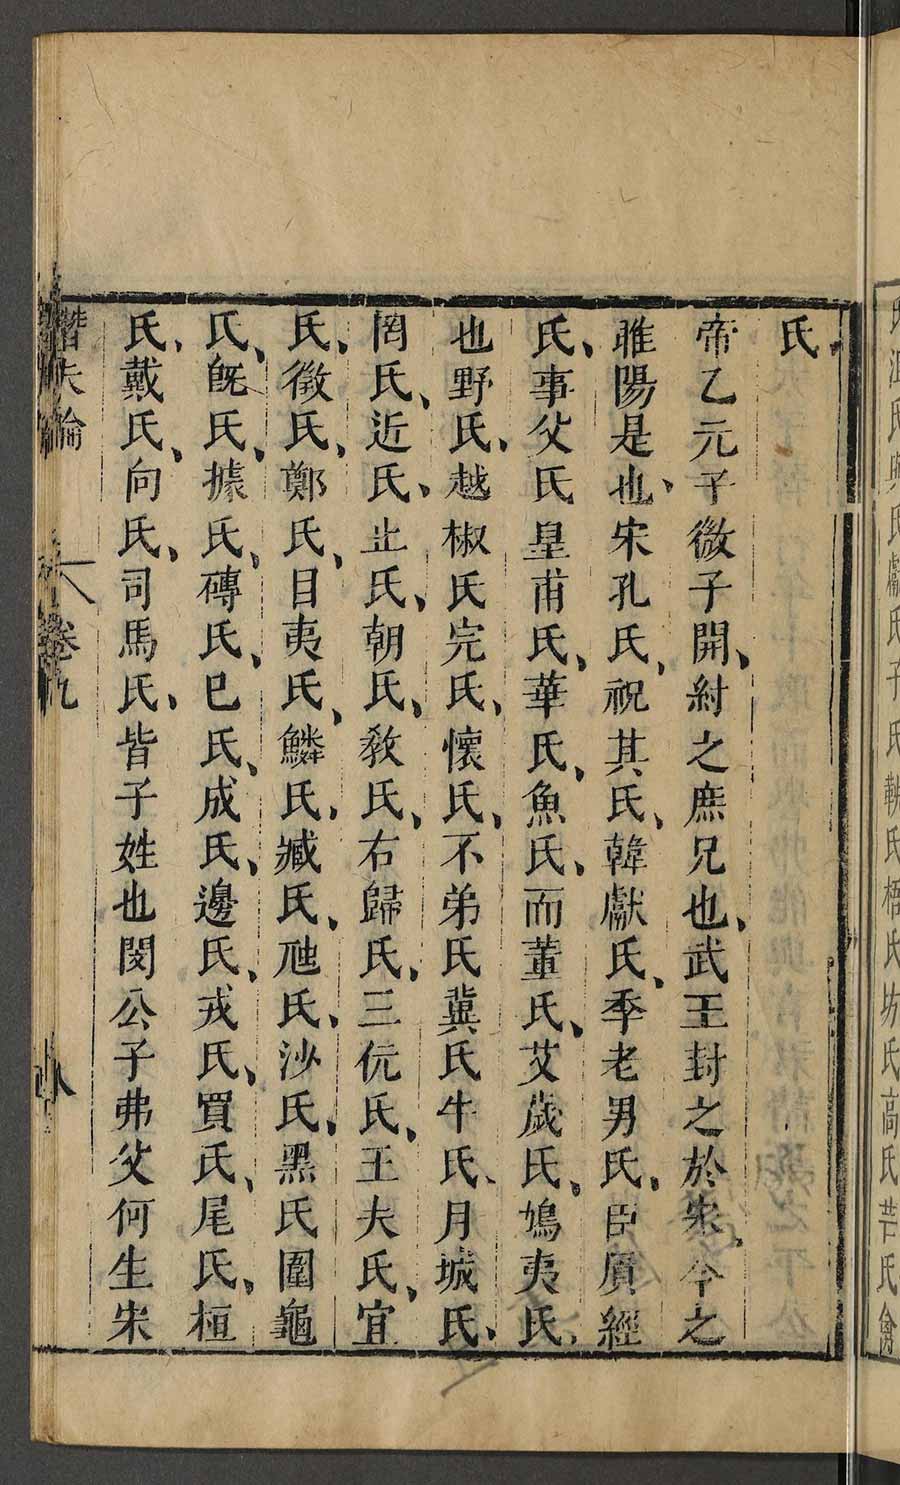 氏
帝乙元子微子開紂之庶兄也武王封之於宋今之
雎陽是也宋孔氏祝其氏韓獻氏季老男氏臣辰經
氏事父氏皇甫氏華氏魚氏而董氏艾歲氏鳩夷氏
也野氏越椒氏完氏懷氏不弟氏冀氏牛氏月城氏
罔氏近氏止氏朝氏敎氏右歸氏三伉氏王夫氏宜
氏徵氏鄭氏目夷氏鱗氏臧氏虺氏沙氏黑氏圍龜
氏旣氏據氏磚氏巳氏成氏邊氏戎氏買氏尾氏桓
氏戴氏向氏司馬氏皆子姓也閔公子弗父何生宋
潛夫論
卷九